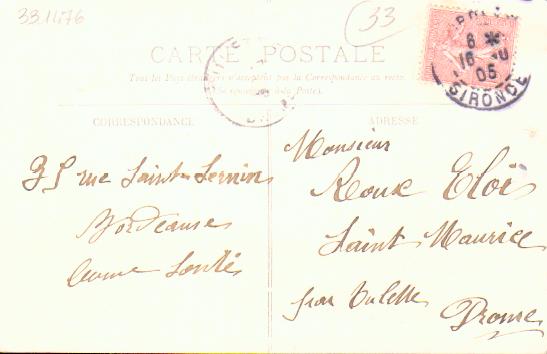 33.1476
33
CARTE POSTALE
Tous les Pays étrangers n'acceptent pas la Correspondance au recto.
(Se renseigner à la Poste).
6
16
05
GIRONDE
CORRESPONDANCE
ADRESSE
35 rue Saint Sernin
Bordeaux
Monsieur
Roux Eloi
Saint Maurice
par Tulette
Drome